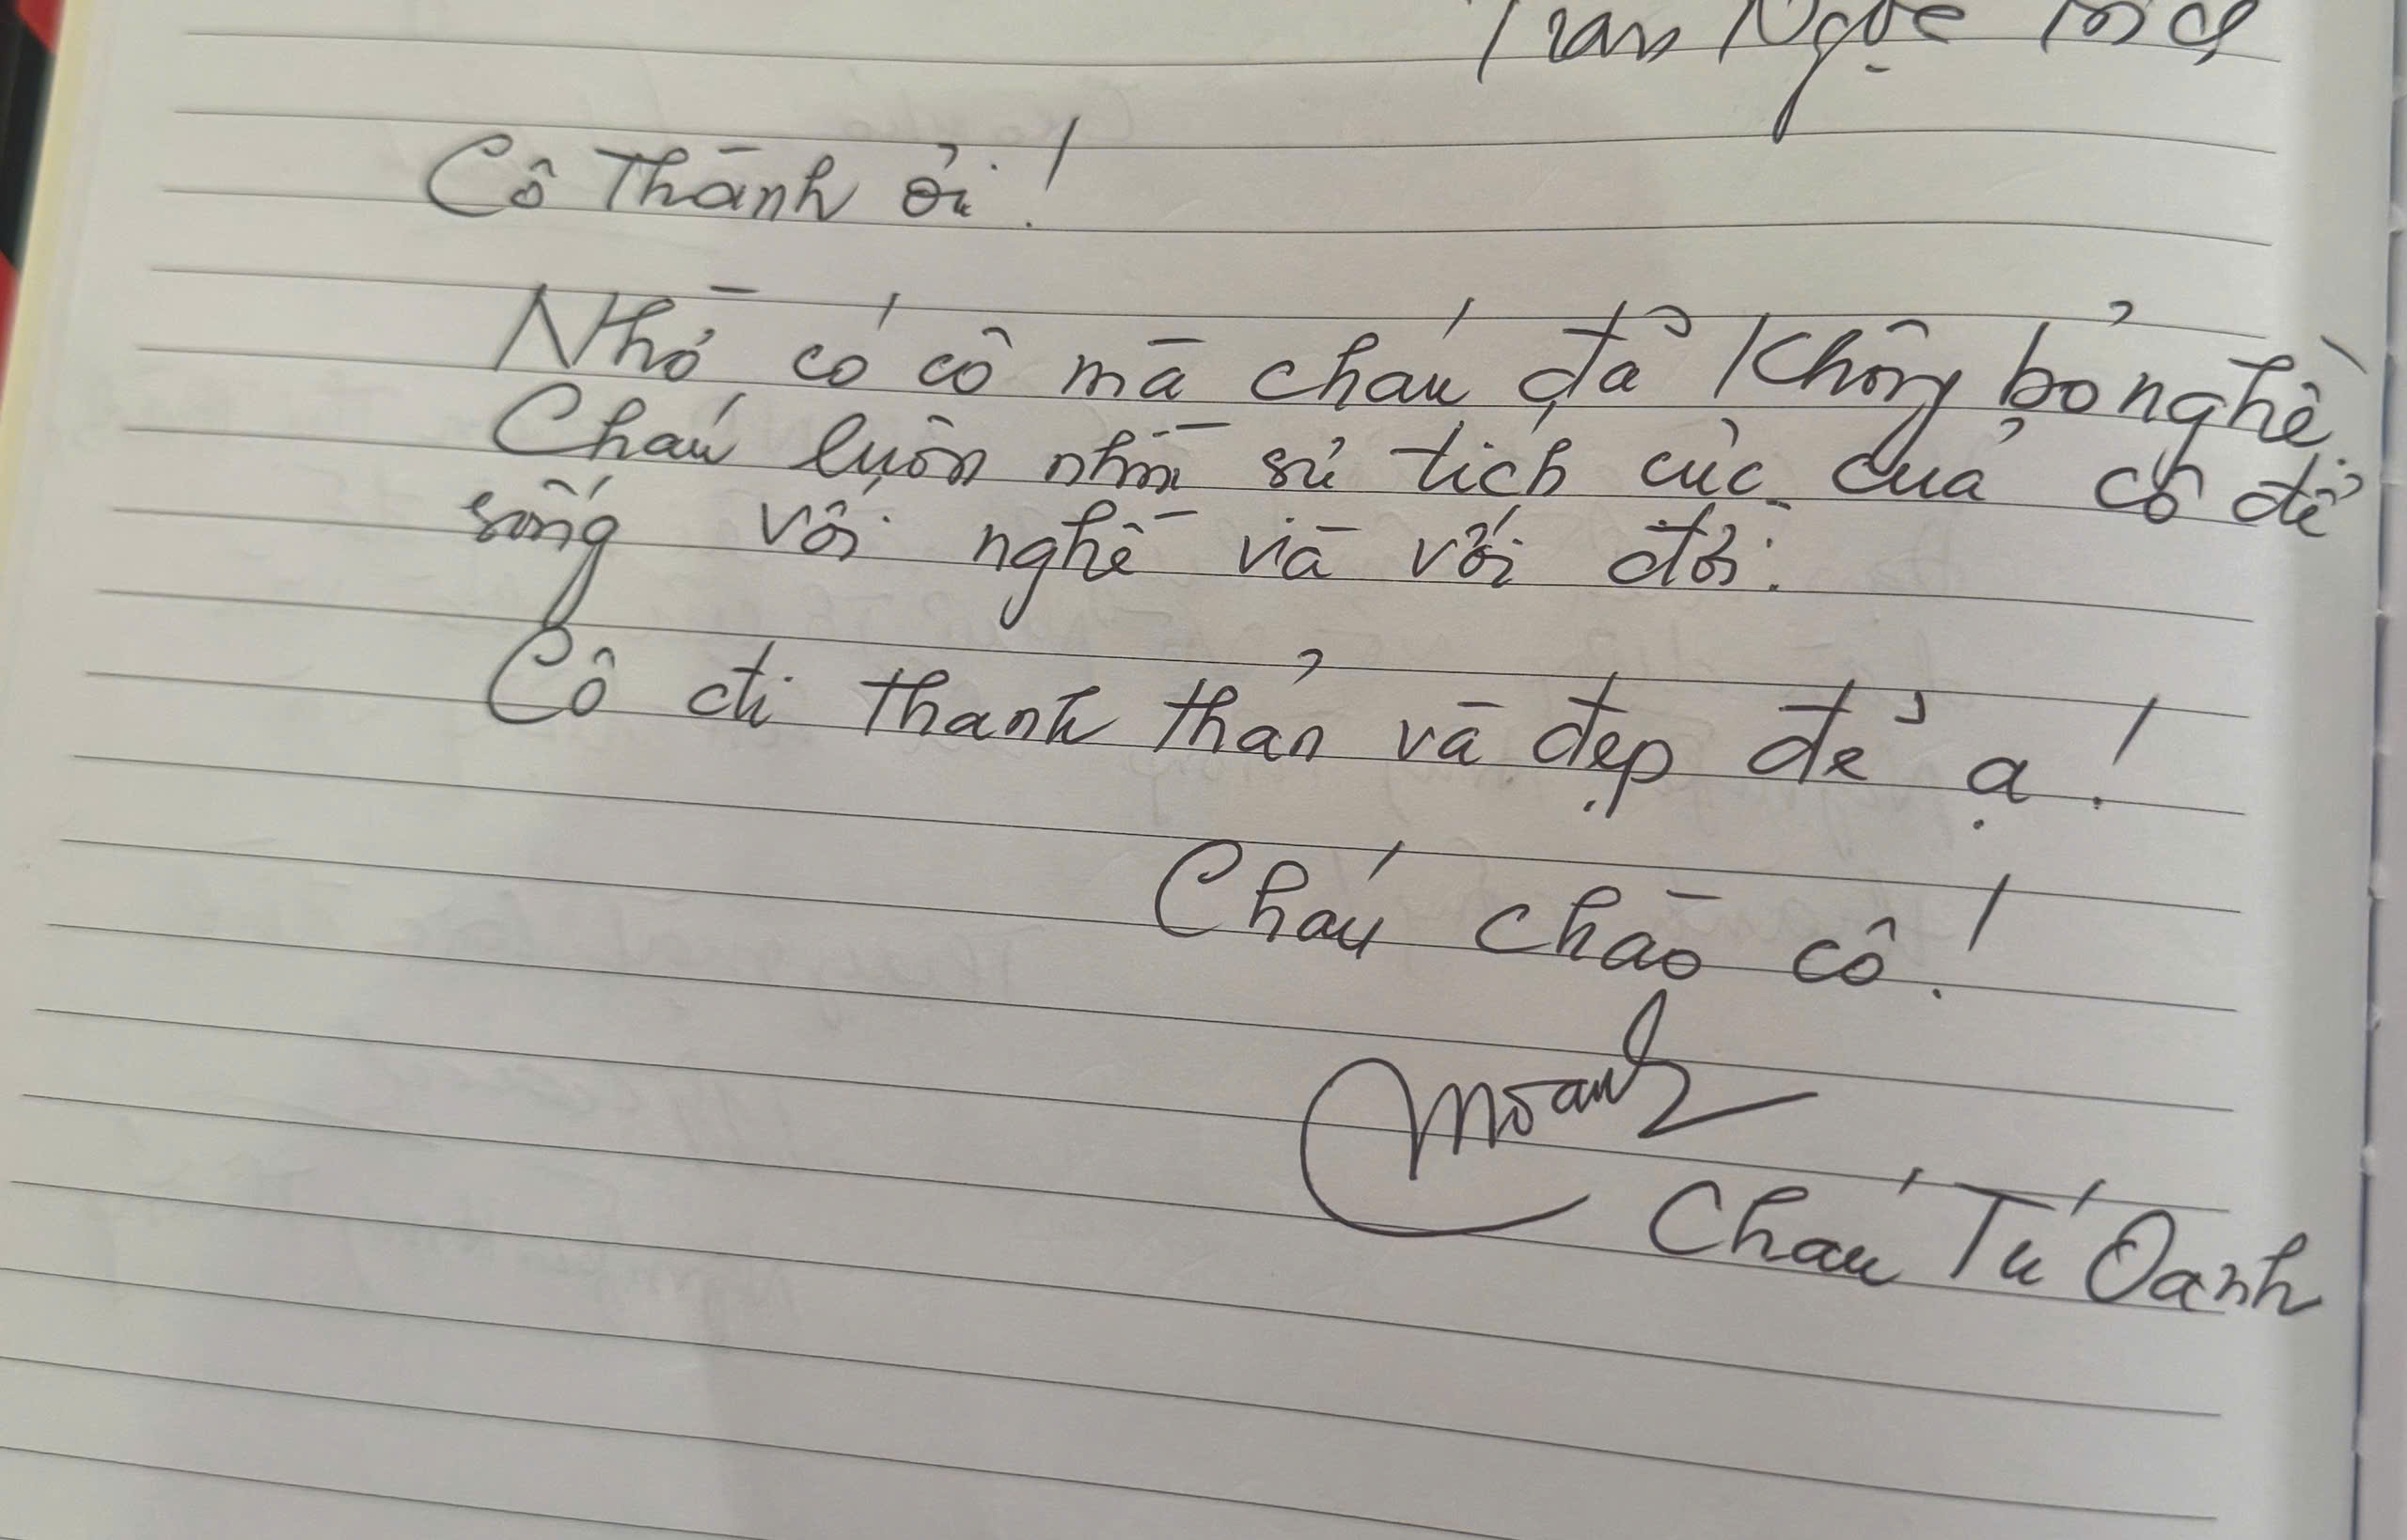 Trần Ngọc
Cô Thành ơi!
Nhờ có cô mà cháu đã không bỏ nghề.
Cháu luôn nhìn sự tích cực của cô để
sống với nghề và với đời.
Cô đi thanh thản và đẹp đẽ ạ!
Cháu chào cô!
Cháu Tú Oanh